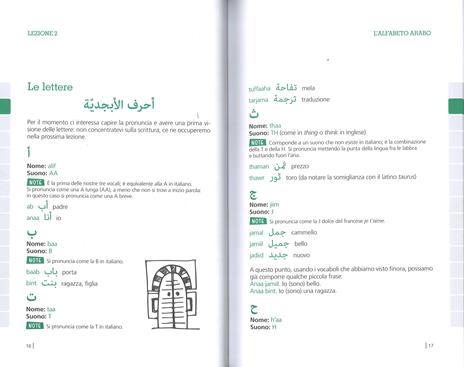 LEZIONE 2
Le lettere
أحرف الأبجديّة
Per il momento ci interessa capire la pronuncia e avere una prima vi-
sione delle lettere: non concentratevi sulla scrittura, ce ne occuperemo
nella prossima lezione.
أ
Nome: alif
Suono: AA
NOTE È la prima delle nostre tre vocali; è equivalente alla A in italiano.
Si pronuncia come una A lunga (AA), a meno che non si trovi a inizio parola:
in questo caso si pronuncia come una A breve.
ab أب padre
anaa أنا io
ب
Nome: baa
Suono: B
NOTE Si pronuncia come la B in italiano.
baab باب porta
bint بنت ragazza, figlia
ت
Nome: taa
Suono: T
NOTE Si pronuncia come la T in italiano.
16
L'ALFABETO ARABO
tuffaaha تفاحة mela
tarjama ترجمة traduzione
ث
Nome: thaa
Suono: TH (come in thing o think in inglese)
NOTE Corrisponde a un suono che non esiste in italiano; è la combinazione
della T e della H. Si pronuncia mettendo la punta della lingua fra le labbra
e buttando fuori l'aria.
thaman ثمن prezzo
thawr ثور toro (da notare la somiglianza con il latino taurus)
ج
Nome: jim
Suono: J
NOTE Si pronuncia come la J dolce del francese je t'aime.
jamal جمل cammello
jamiil جميل bello
jadiid جديد nuovo
A questo punto, usando i vocaboli che abbiamo visto finora, possiamo
già comporre qualche piccola frase:
Anaa jamiil. Io (sono) bello.
Anaa bint. Io (sono) una ragazza.
ح
Nome: h'aa
Suono: H
17